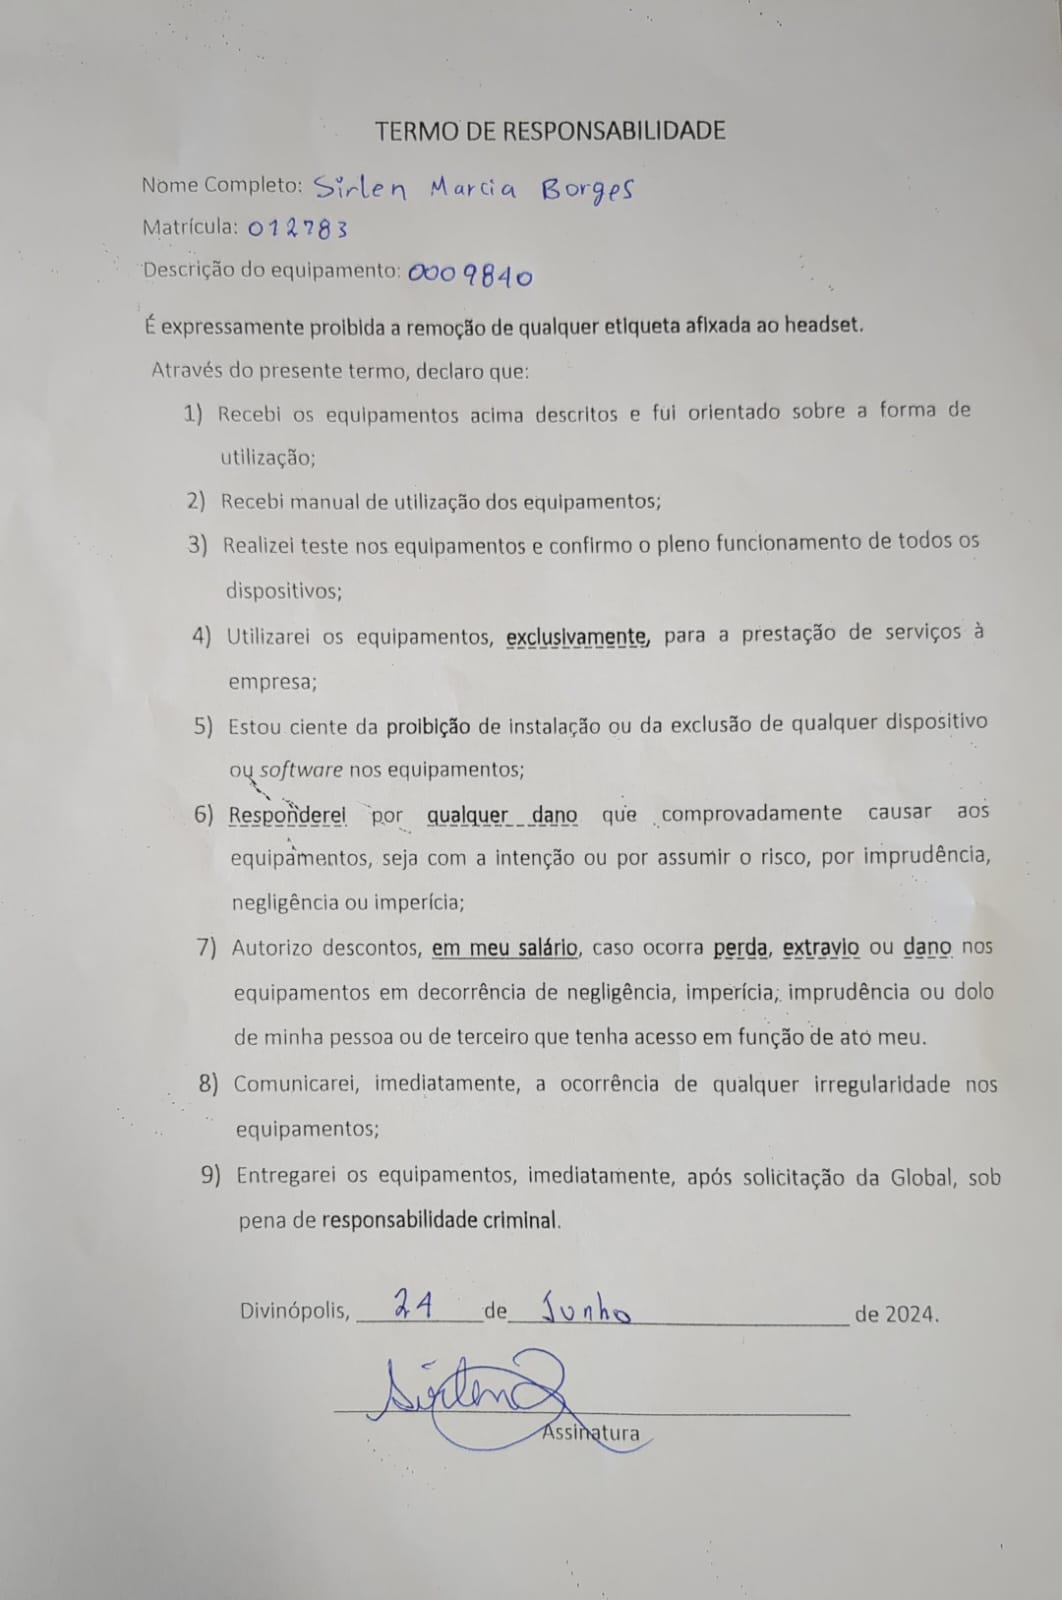 TERMO DE RESPONSABILIDADE
Nome Completo: Sirlen Marcia Borges
Matrícula: 012783
Descrição do equipamento: 0009840
É expressamente proibida a remoção de qualquer etiqueta afixada ao headset.
Através do presente termo, declaro que:
1) Recebi os equipamentos acima descritos e fui orientado sobre a forma de
utilização;
2) Recebi manual de utilização dos equipamentos;
3) Realizei teste nos equipamentos e confirmo o pleno funcionamento de todos os
dispositivos;
4) Utilizarei os equipamentos, exclusivamente, para a prestação de serviços à
empresa;
5) Estou ciente da proibição de instalação ou da exclusão de qualquer dispositivo
ou software nos equipamentos;
6) Responderei por qualquer dano que comprovadamente causar aos
equipamentos, seja com a intenção ou por assumir o risco, por imprudência,
negligência ou imperícia;
7) Autorizo descontos, em meu salário, caso ocorra perda, extravio ou dano nos
equipamentos em decorrência de negligência, imperícia, imprudência ou dolo
de minha pessoa ou de terceiro que tenha acesso em função de ato meu.
8) Comunicarei, imediatamente, a ocorrência de qualquer irregularidade nos
equipamentos;
9) Entregarei os equipamentos, imediatamente, após solicitação da Global, sob
pena de responsabilidade criminal.
Divinópolis, 24 de Junho de 2024.
Sirlen
Assinatura